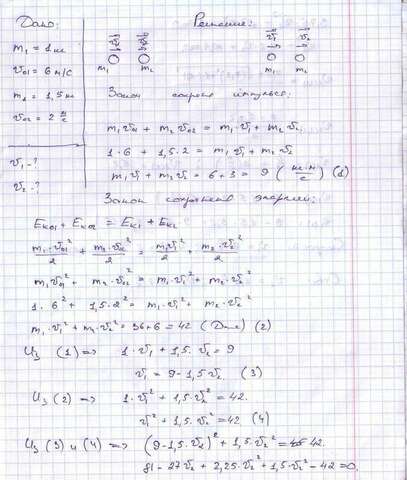 Дано:
Решение:
m₁ = 1 кг
v₀₁ = 6 м/с
m₂ = 1,5 кг
v₀₂ = 2 м/с
v₁ - ?
v₂ - ?
m₁ m₂ m₁ m₂
Закон сохран импульса:
m₁v₀₁ + m₂v₀₂ = m₁·v₁ + m₂v₂
1·6 + 1,5·2 = m₁v₁ + m₂v₂
m₁v₁ + m₂v₂ = 6+3 = 9 (кг·м/с) (1)
Закон сохранения энергии:
Eк₀₁ + Eк₀₂ = Eк₁ + Eк₂
m₁·v₀₁²/2 + m₂v₀₂²/2 = m₁v₁²/2 + m₂·v₂²/2
m₁v₀₁² + m₂·v₀₂² = m₁·v₁² + m₂·v₂²
1·6² + 1,5·2² = m₁·v₁² + m₂·v₂²
m₁·v₁² + m₂·v₂² = 36+6 = 42 (Дж) (2)
Из (1) => 1·v₁ + 1,5·v₂ = 9
v₁ = 9-1,5v₂ (3)
Из (2) => 1·v₁² + 1,5·v₂² = 42.
v₁² + 1,5·v₂² = 42 (4)
Из (3) и (4) => (9-1,5·v₂)² + 1,5·v₂² = 42.
81 - 27v₂ + 2,25·v₂² + 1,5·v₂² - 42 = 0,